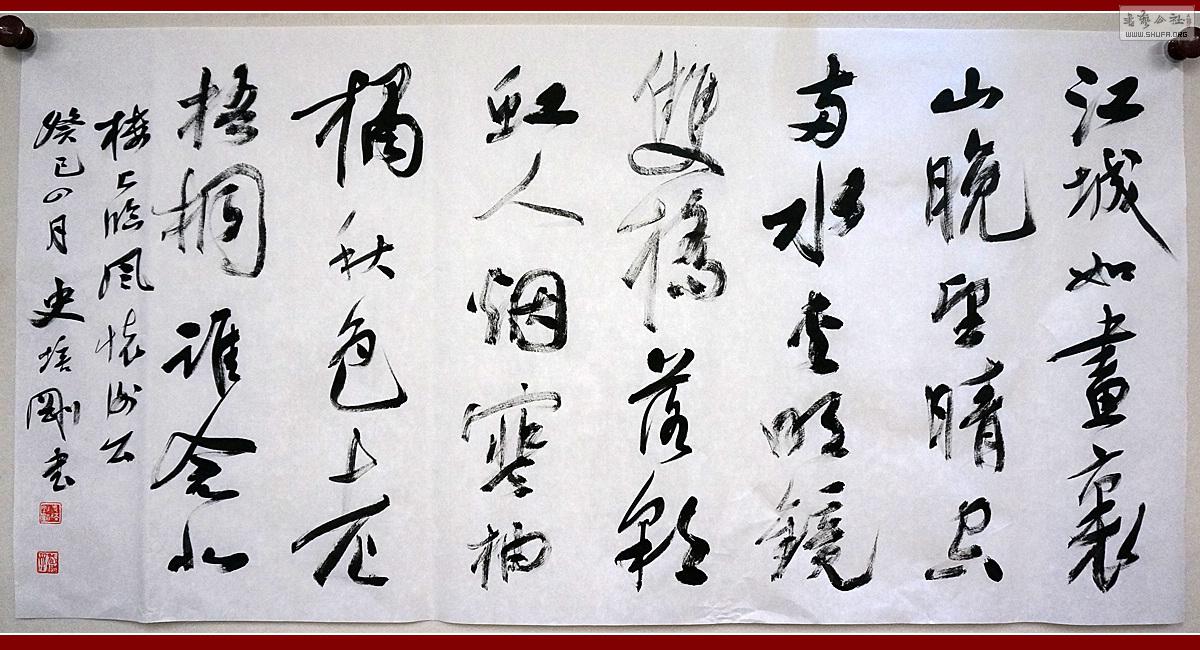 江城如畫裏
山晚望晴空
兩水夾明鏡
雙橋落彩
虹人烟寒柚
橘秋色上老
梧桐誰念北
樓上臨風懷謝公
癸巳四月史培剛書
書藝公社
WWW.SHUFA.ORG